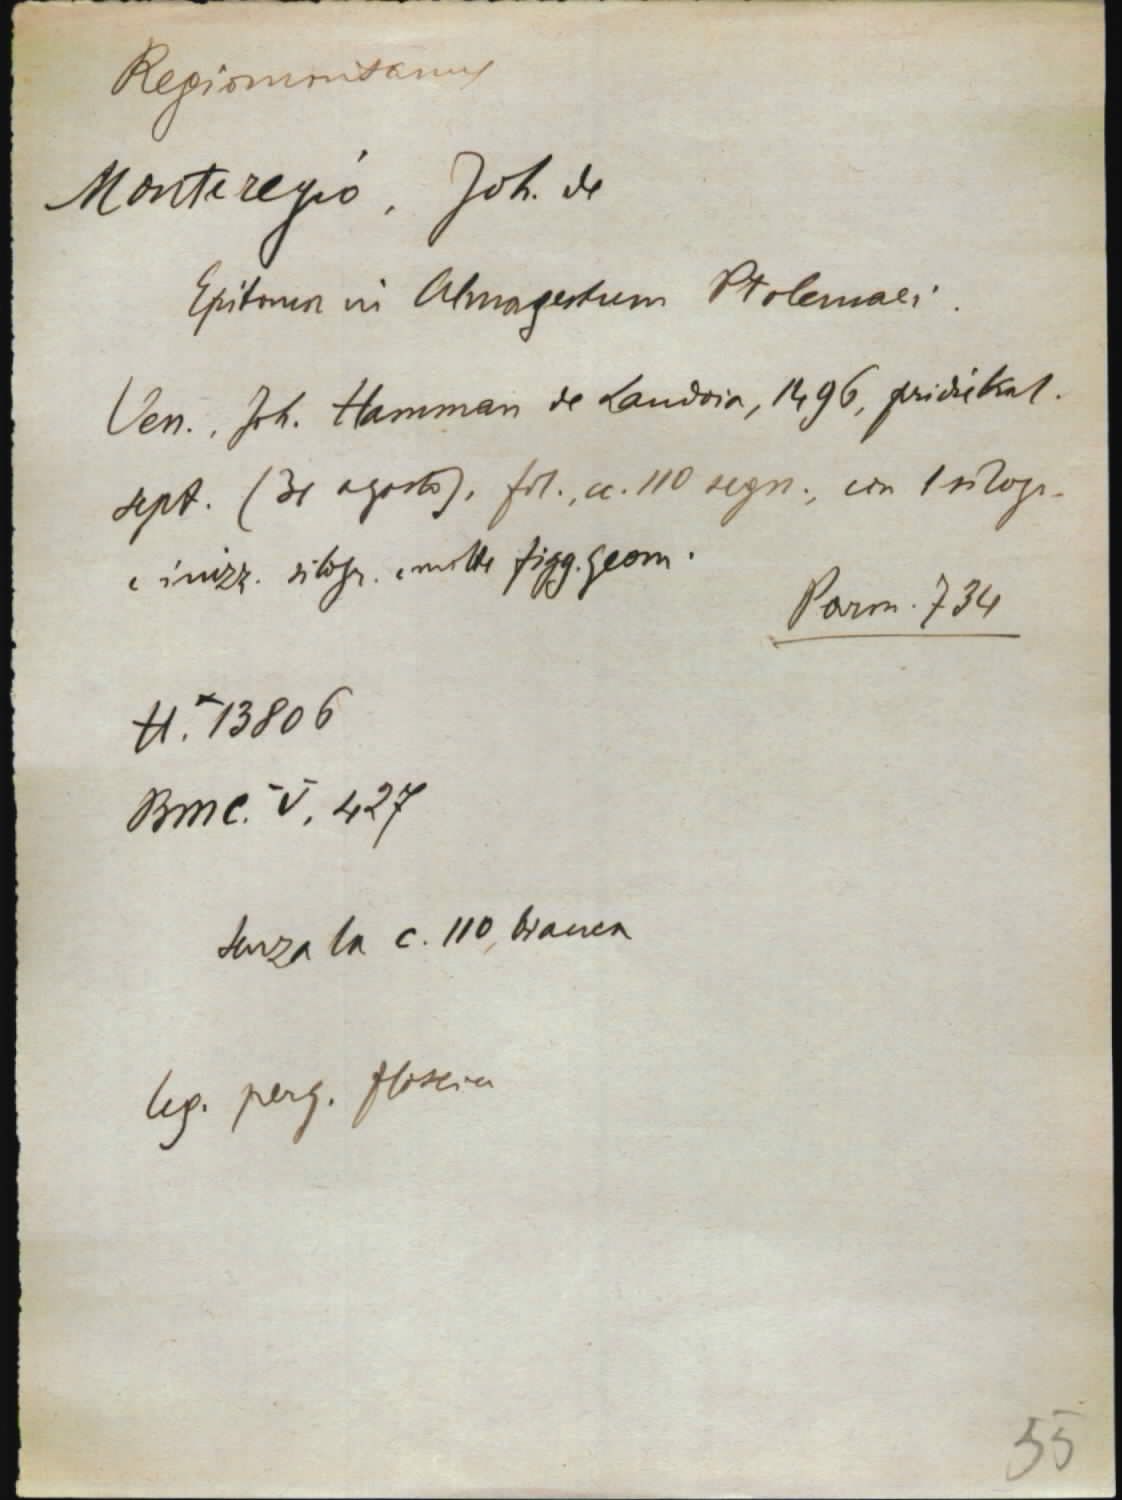 Regiomontanus
Monteregio, Joh. de
Epitoma in Almagestum Ptolemaei.
Ven., Joh. Hamman de Landoia, 1496, pridie kal.
sept. (31 agosto), fol., cc. 110 segn., con 1 silogr.
e inizz. silogr. e molte figg. geom.
Parm. 734
H.* 13806
BMC. V, 427
senza la c. 110, bianca
leg. perg. floscia
55